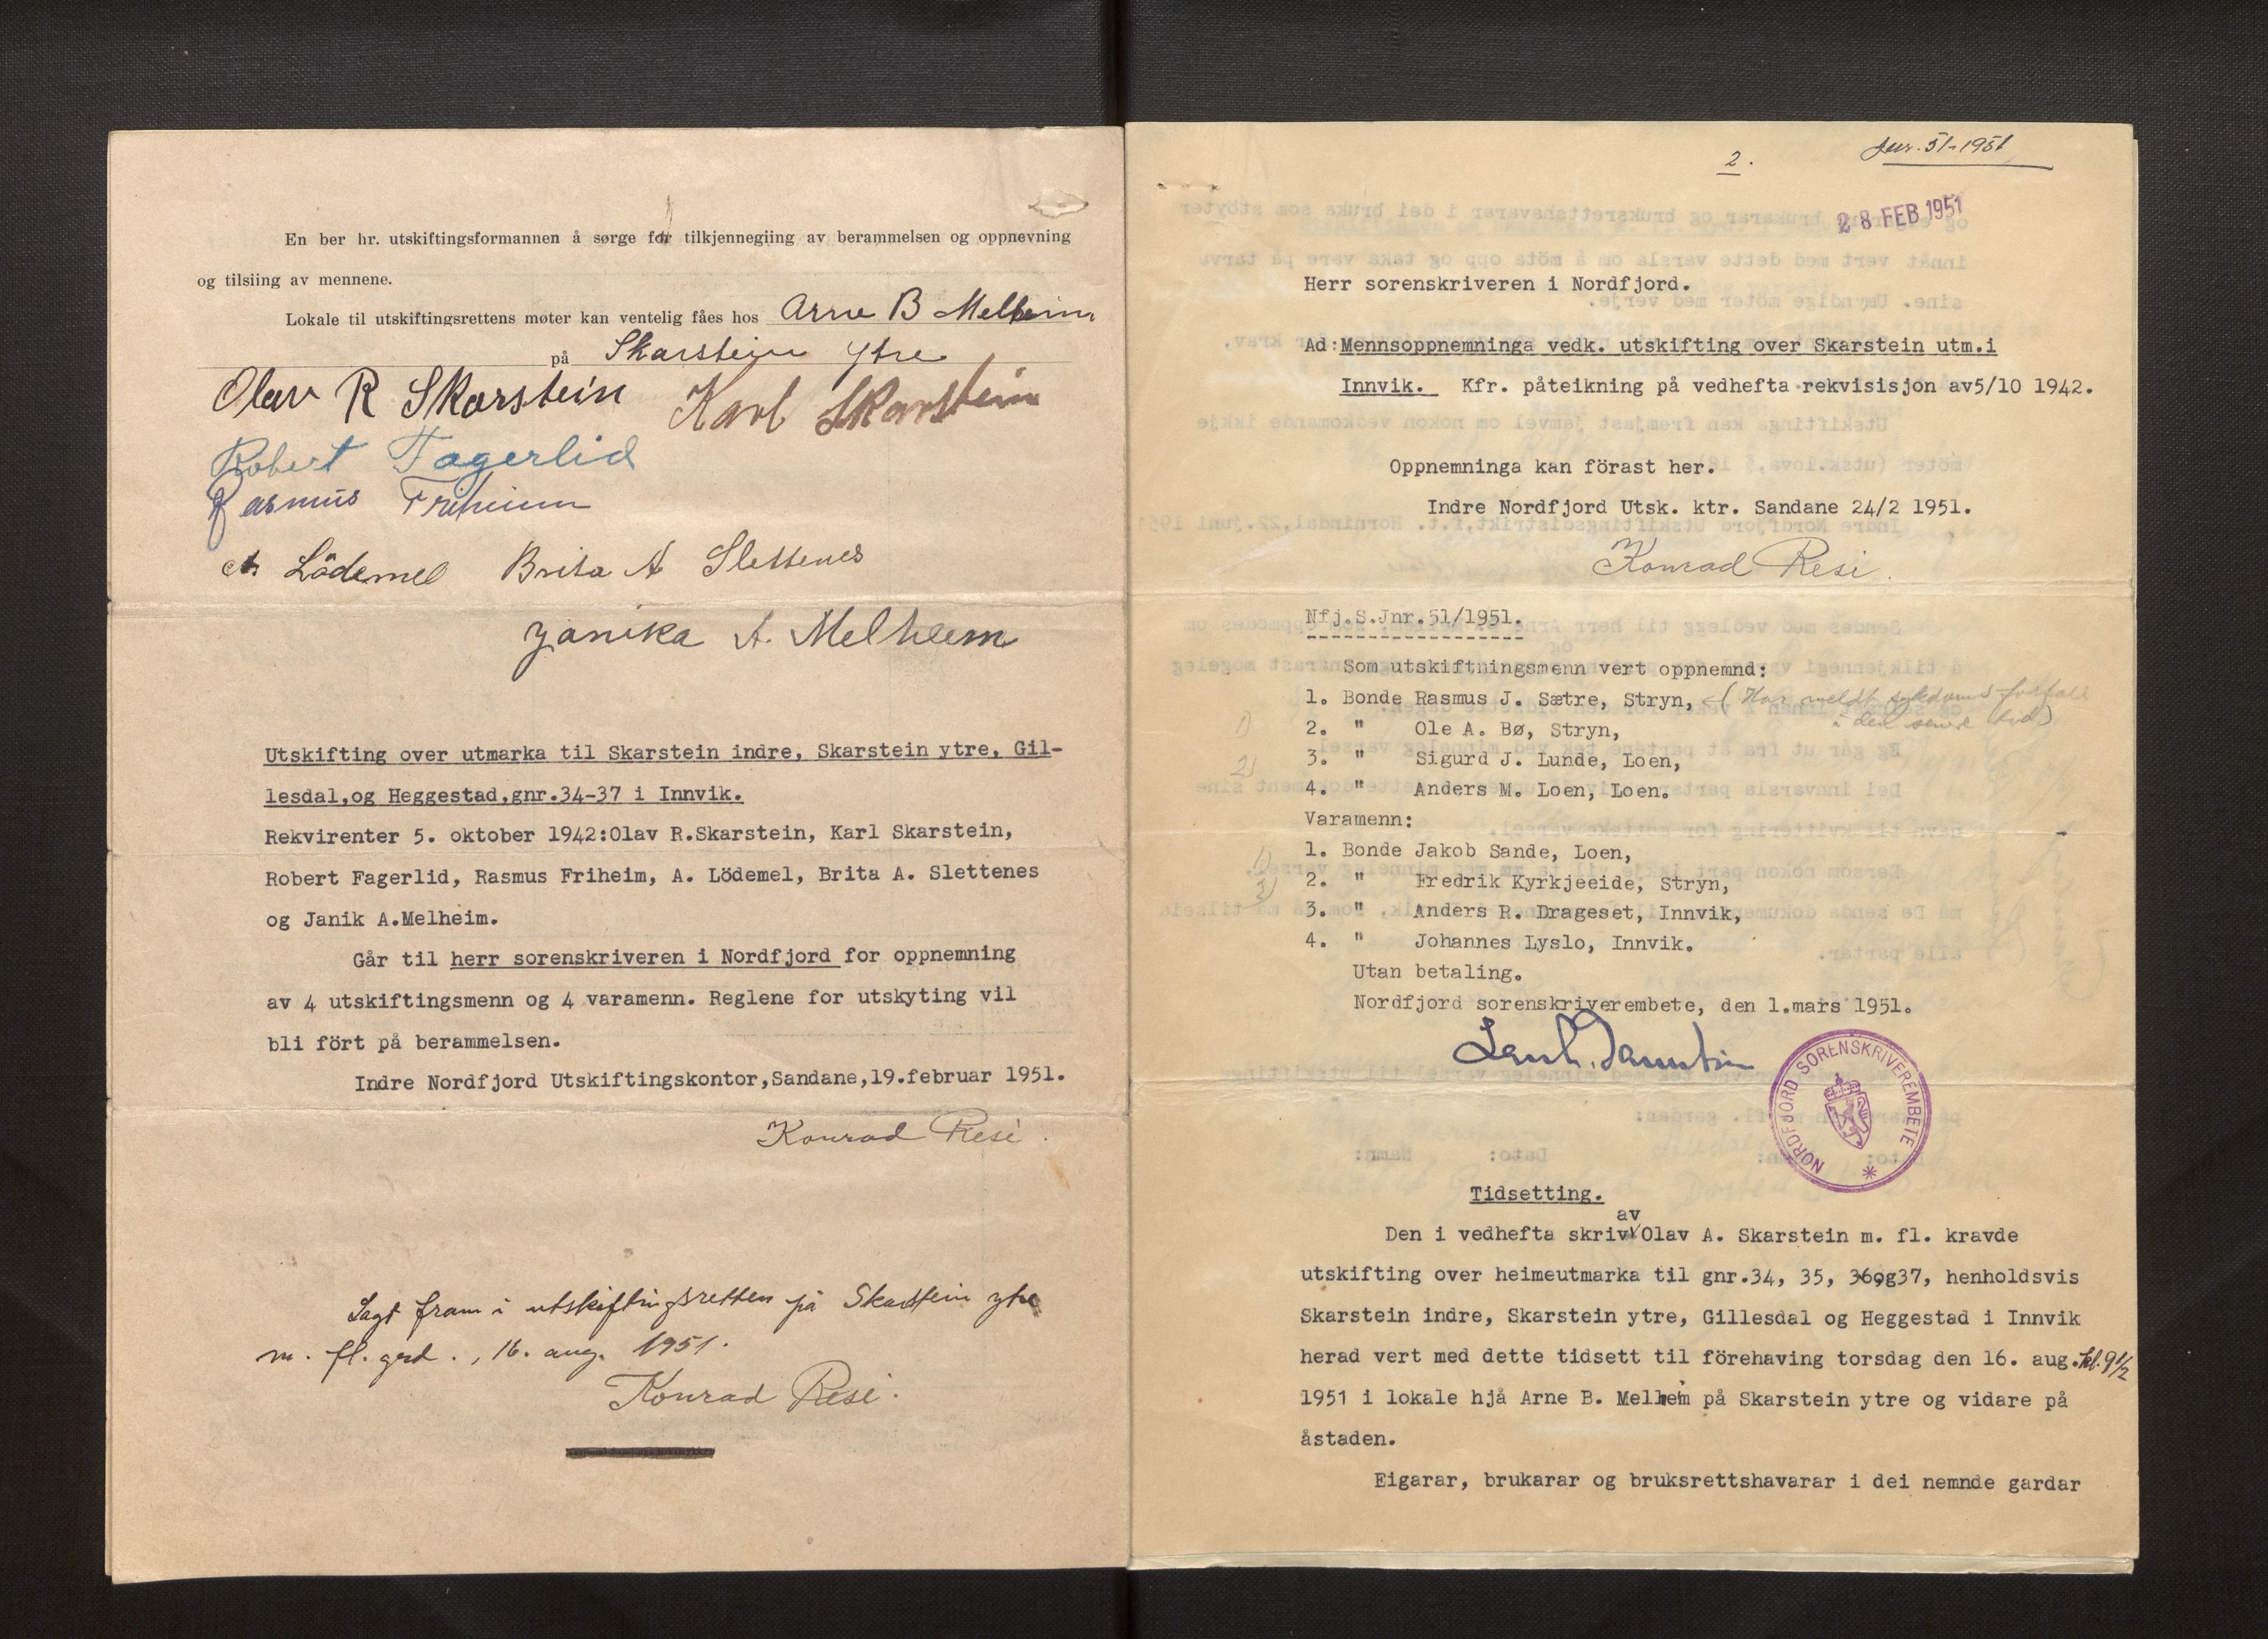 En ber hr. utskiftingsformannen å sørge for tilkjennegiing av berammelsen og oppnevning
og tilsiing av mennene.
Lokale til utskiftingsrettens møter kan ventelig fåes hos Arne B Melheim
på Skarstein ytre
Olav R Skarstein Karl Skarstein
Robert Fagerlid
Rasmus Friheim
A. Lödemel Brita A Slettenes
Janika A. Melheim
Utskifting over utmarka til Skarstein indre, Skarstein ytre, Gil-
lesdal,og Heggestad,gnr.34-37 i Innvik.
Rekvirenter 5. oktober 1942:Olav R.Skarstein, Karl Skarstein,
Robert Fagerlid, Rasmus Friheim, A. Lödemel, Brita A. Slettenes
og Janik A.Melheim.
Går til herr sorenskriveren i Nordfjord for oppnemning
av 4 utskiftingsmenn og 4 varamenn. Reglene for utskyting vil
bli fört på berammelsen.
Indre Nordfjord Utskiftingskontor,Sandane,19.februar 1951.
Konrad Resi.
Lagt fram i utskiftingsretten på Skarstein ytre
m. fl. grd., 16. aug. 1951.
Konrad Resi.
2.
Jnr. 51-1951
28 FEB 1951
Herr sorenskriveren i Nordfjord.
Ad:Mennsoppnemninga vedk. utskifting over Skarstein utm.i
Innvik. Kfr. påteikning på vedhefta rekvisisjon av5/10 1942.
Oppnemninga kan förast her.
Indre Nordfjord Utsk. ktr. Sandane 24/2 1951.
Konrad Resi.
Nfj.S.Jnr.51/1951.
Som utskiftningsmenn vert oppnemnd:
1. Bonde Rasmus J. Sætre, Stryn, (Har meldt sykdomsforfall
i den senere tid)
1) 2. " Ole A. Bø, Stryn,
2) 3. " Sigurd J. Lunde, Loen,
4. " Anders M. Loen, Loen.
Varamenn:
1) 1. Bonde Jakob Sande, Loen,
2) 2. " Fredrik Kyrkjeeide, Stryn,
3. " Anders R. Drageset, Innvik,
4. " Johannes Lyslo, Innvik.
Utan betaling.
Nordfjord sorenskriverembete, den 1.mars 1951.
NORDFJORD SORENSKRIVEREMBETE
Tidsetting.
Den i vedhefta skriv av Olav A. Skarstein m. fl. kravde
utskifting over heimeutmarka til gnr.34, 35, 36og37, henholdsvis
Skarstein indre, Skarstein ytre, Gillesdal og Heggestad i Innvik
herad vert med dette tidsett til förehaving torsdag den 16. aug. kl. 9 1/2
1951 i lokale hjå Arne B. Melheim på Skarstein ytre og vidare på
åstaden.
Eigarar, brukarar og bruksrettshavarar i dei nemnde gardar